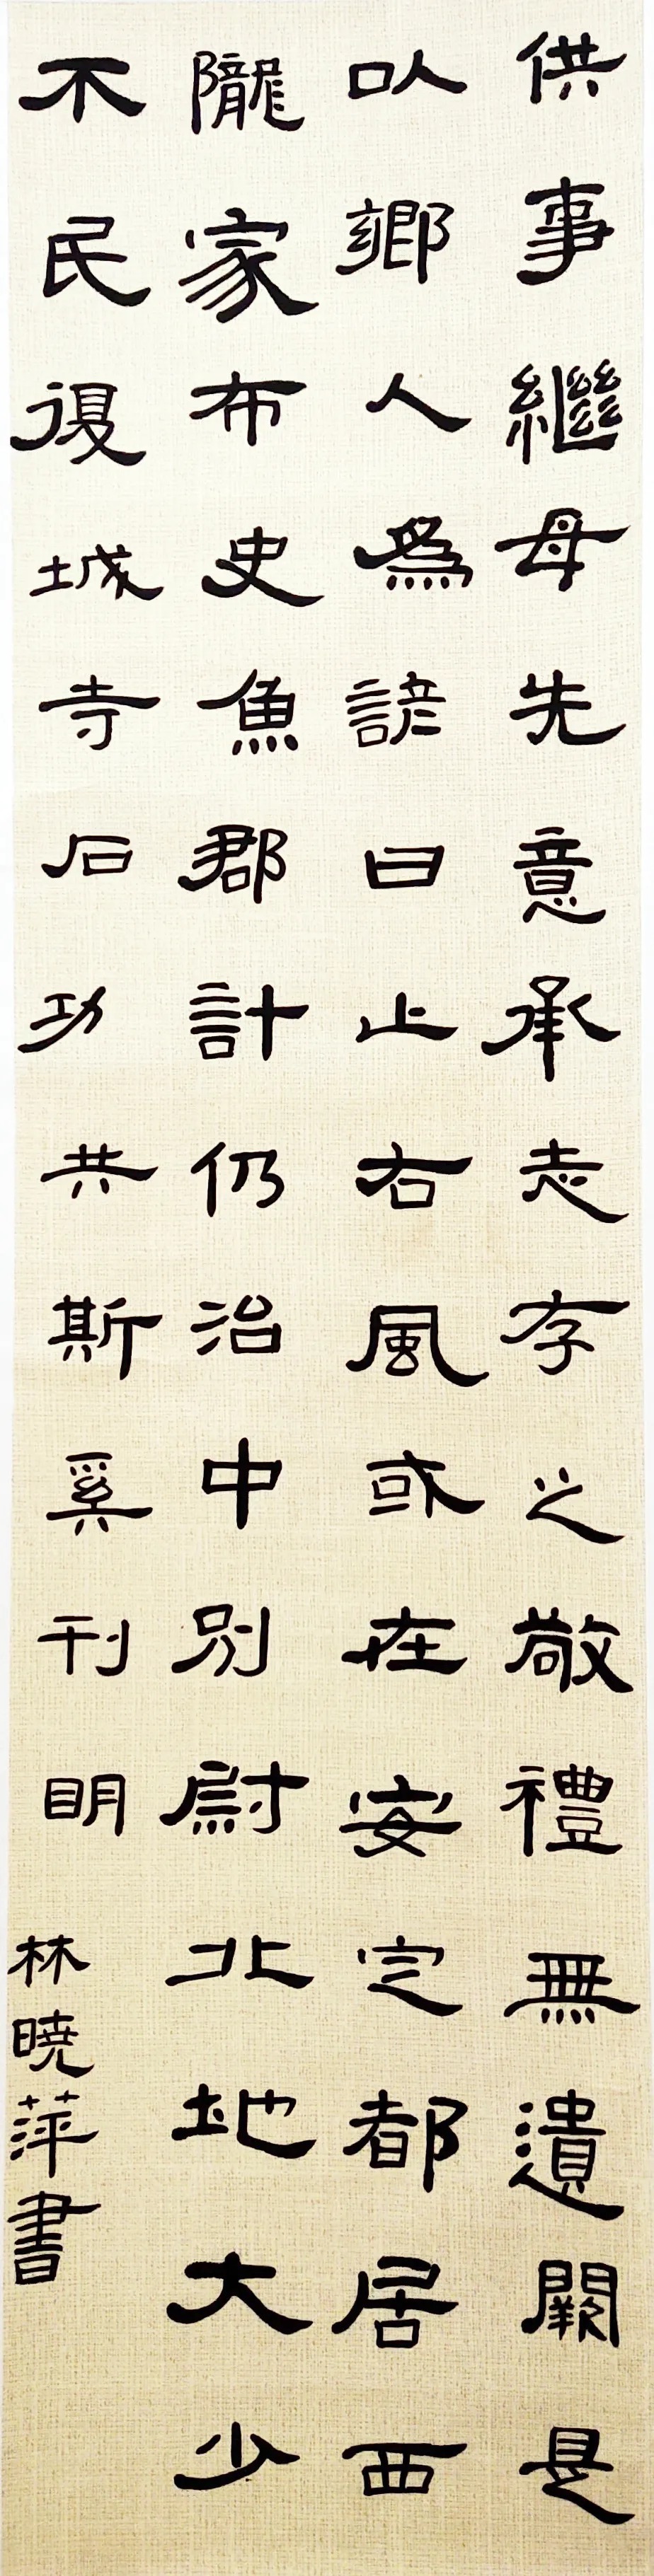 供事繼母先意承志存之敬禮無遺闕是
以鄉人爲諺曰止右風或在安定都居西
隴家布史魚郡計仍治中別尉北地大少
不民復城寺石功共斯奚刊明
林暁萍書